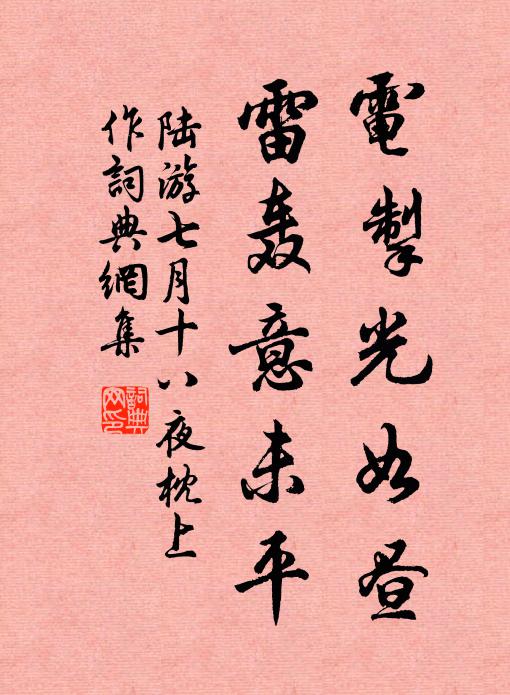 電掣光如昼
雷轰意未平
陆游七月十八夜枕上
作詞典網集
詞典网印